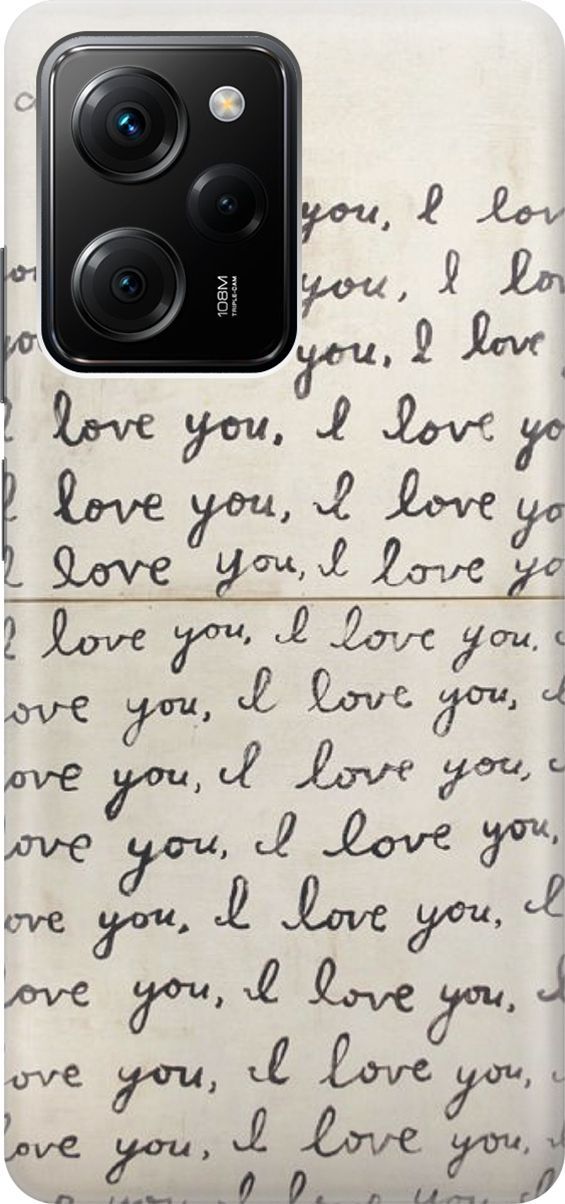 108M
TRIPLE-CAM
you, I lov
you, I lo
you, I love
love you, I love yo
love you, I love yo
love you, I love yo
I love you, I love you,
ove you, I love you,
ove you, I love you,
ove you, I love you,
ove you, I love you, I
ove you, I love you,
ove you, I love you,
ove you, I love you,